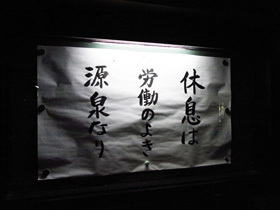 休息は
労働のよき
源泉なり